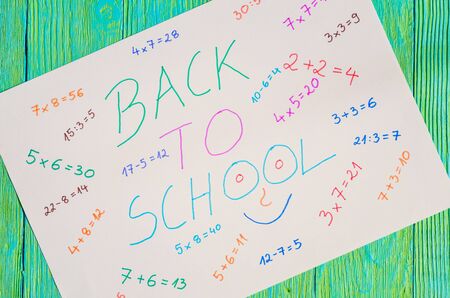 4×7=28
7×7=
3×3=9
7×8=56
BACK
2+2=4
10-6=4
4×5=20
15:3=5
3+3=6
TO
21:3=7
5×6=30
17-5=12
22-8=14
SCHOOL
7+3=10
3×7=21
4+8=12
5×8=40
5+6=11
12-7=5
7+6=13